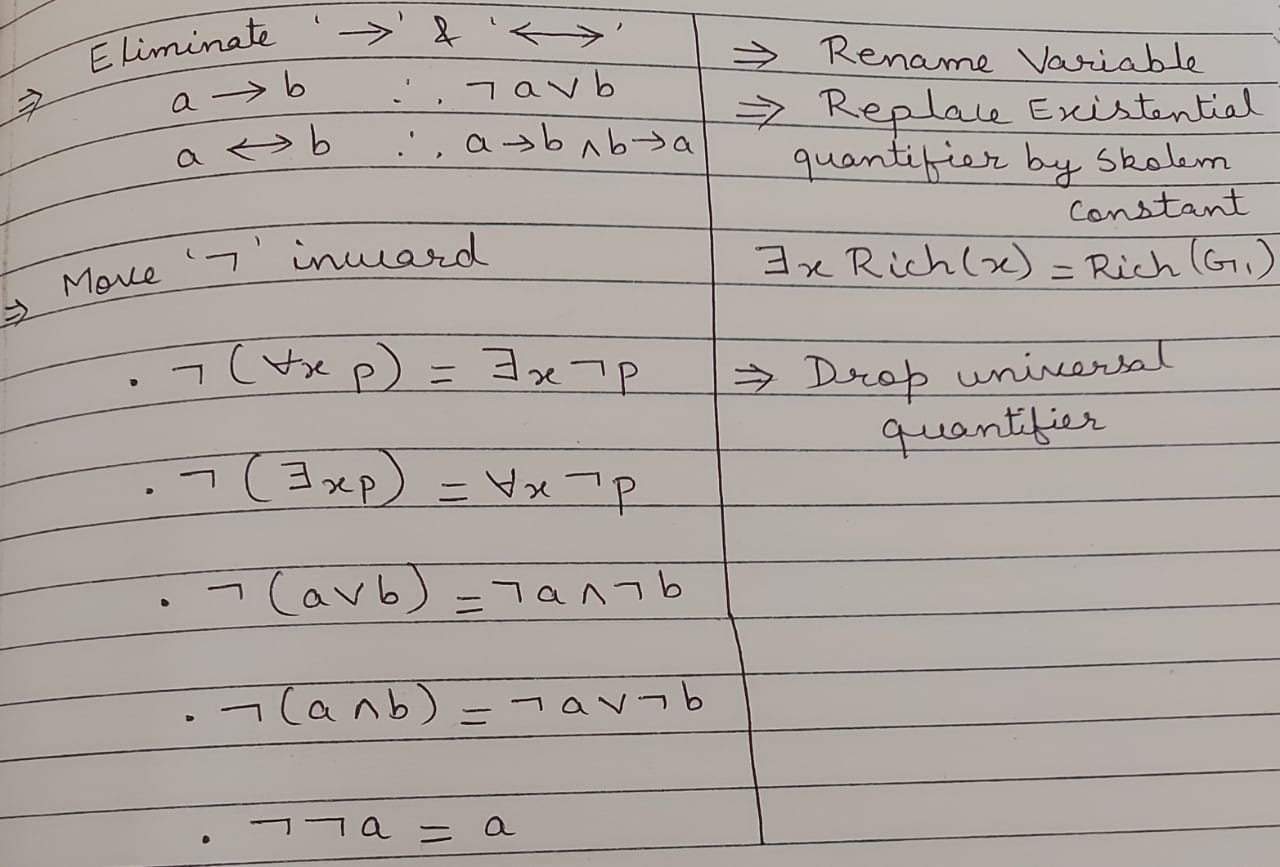 Eliminate '→' & '↔'
⇒ a → b ∴ ¬a∨b
a ↔ b ∴ a→b∧b→a
⇒ Move '¬' inward
. ¬(∀x p) = ∃x ¬p
. ¬(∃xp) = ∀x ¬p
. ¬(a∨b) = ¬a∧¬b
. ¬(a∧b) = ¬a∨¬b
. ¬¬a = a
⇒ Rename Variable
⇒ Replace Existential
quantifier by Skolem
Constant
∃x Rich(x) = Rich(G₁)
⇒ Drop universal
quantifier